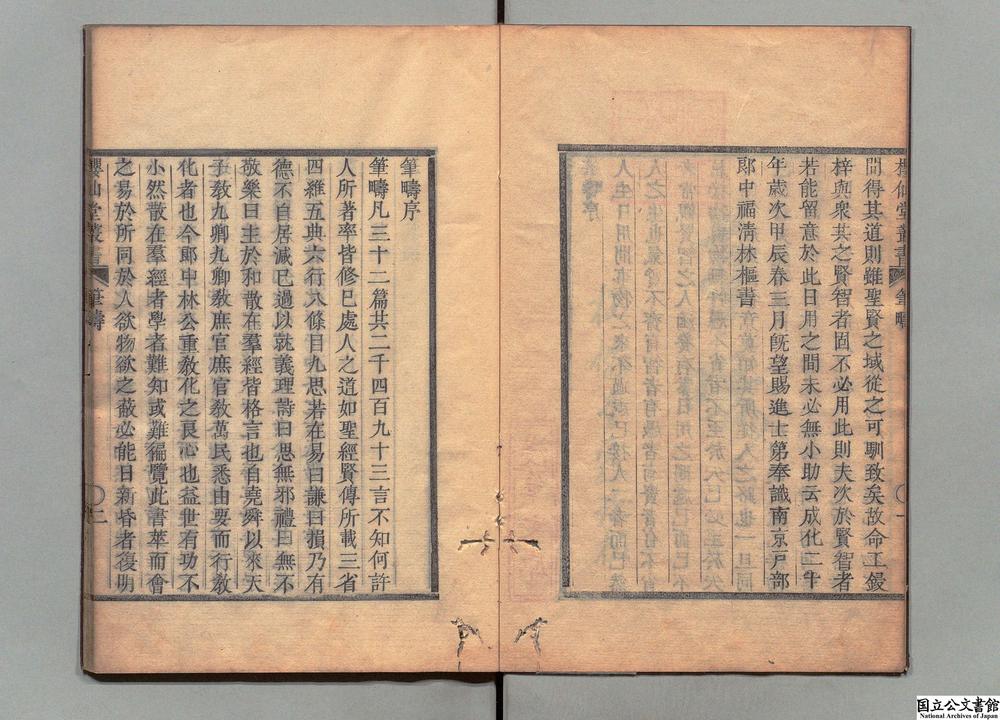 間得其道則雖聖賢之域從之可馴致矣故命工鋟
梓與衆共之賢智者固不必用此則夫次於賢智者
若能留意於此日用之間未必無小助云成化二十
年歲次甲辰春三月旣望賜進士第奉議南京戸部
郞中福淸林樞書
筆疇序
筆疇凡三十二篇共二千四百九十三言不知何許
人所著率皆修已處人之道如聖經賢傳所載三省
四維五典六行八條目九思若在易曰謙曰損乃有
德不自居滅已過以就義理詩曰思無邪禮曰無不
敬樂曰主於和散在羣經皆格言也自堯舜以來天
子敎九卿九卿敎庶官庶官敎萬民悉由要而行敎
化者也今郞中林公重敎化之良心也益世有功不
小然散在羣經者學者難知或難徧覽此書萃而會
之易於所同於人欲物欲之蔽必能日新昏者復明
櫻仙堂叢書
筆疇
二
櫻仙堂叢書
筆疇
一
国立公文書館
National Archives of Japan